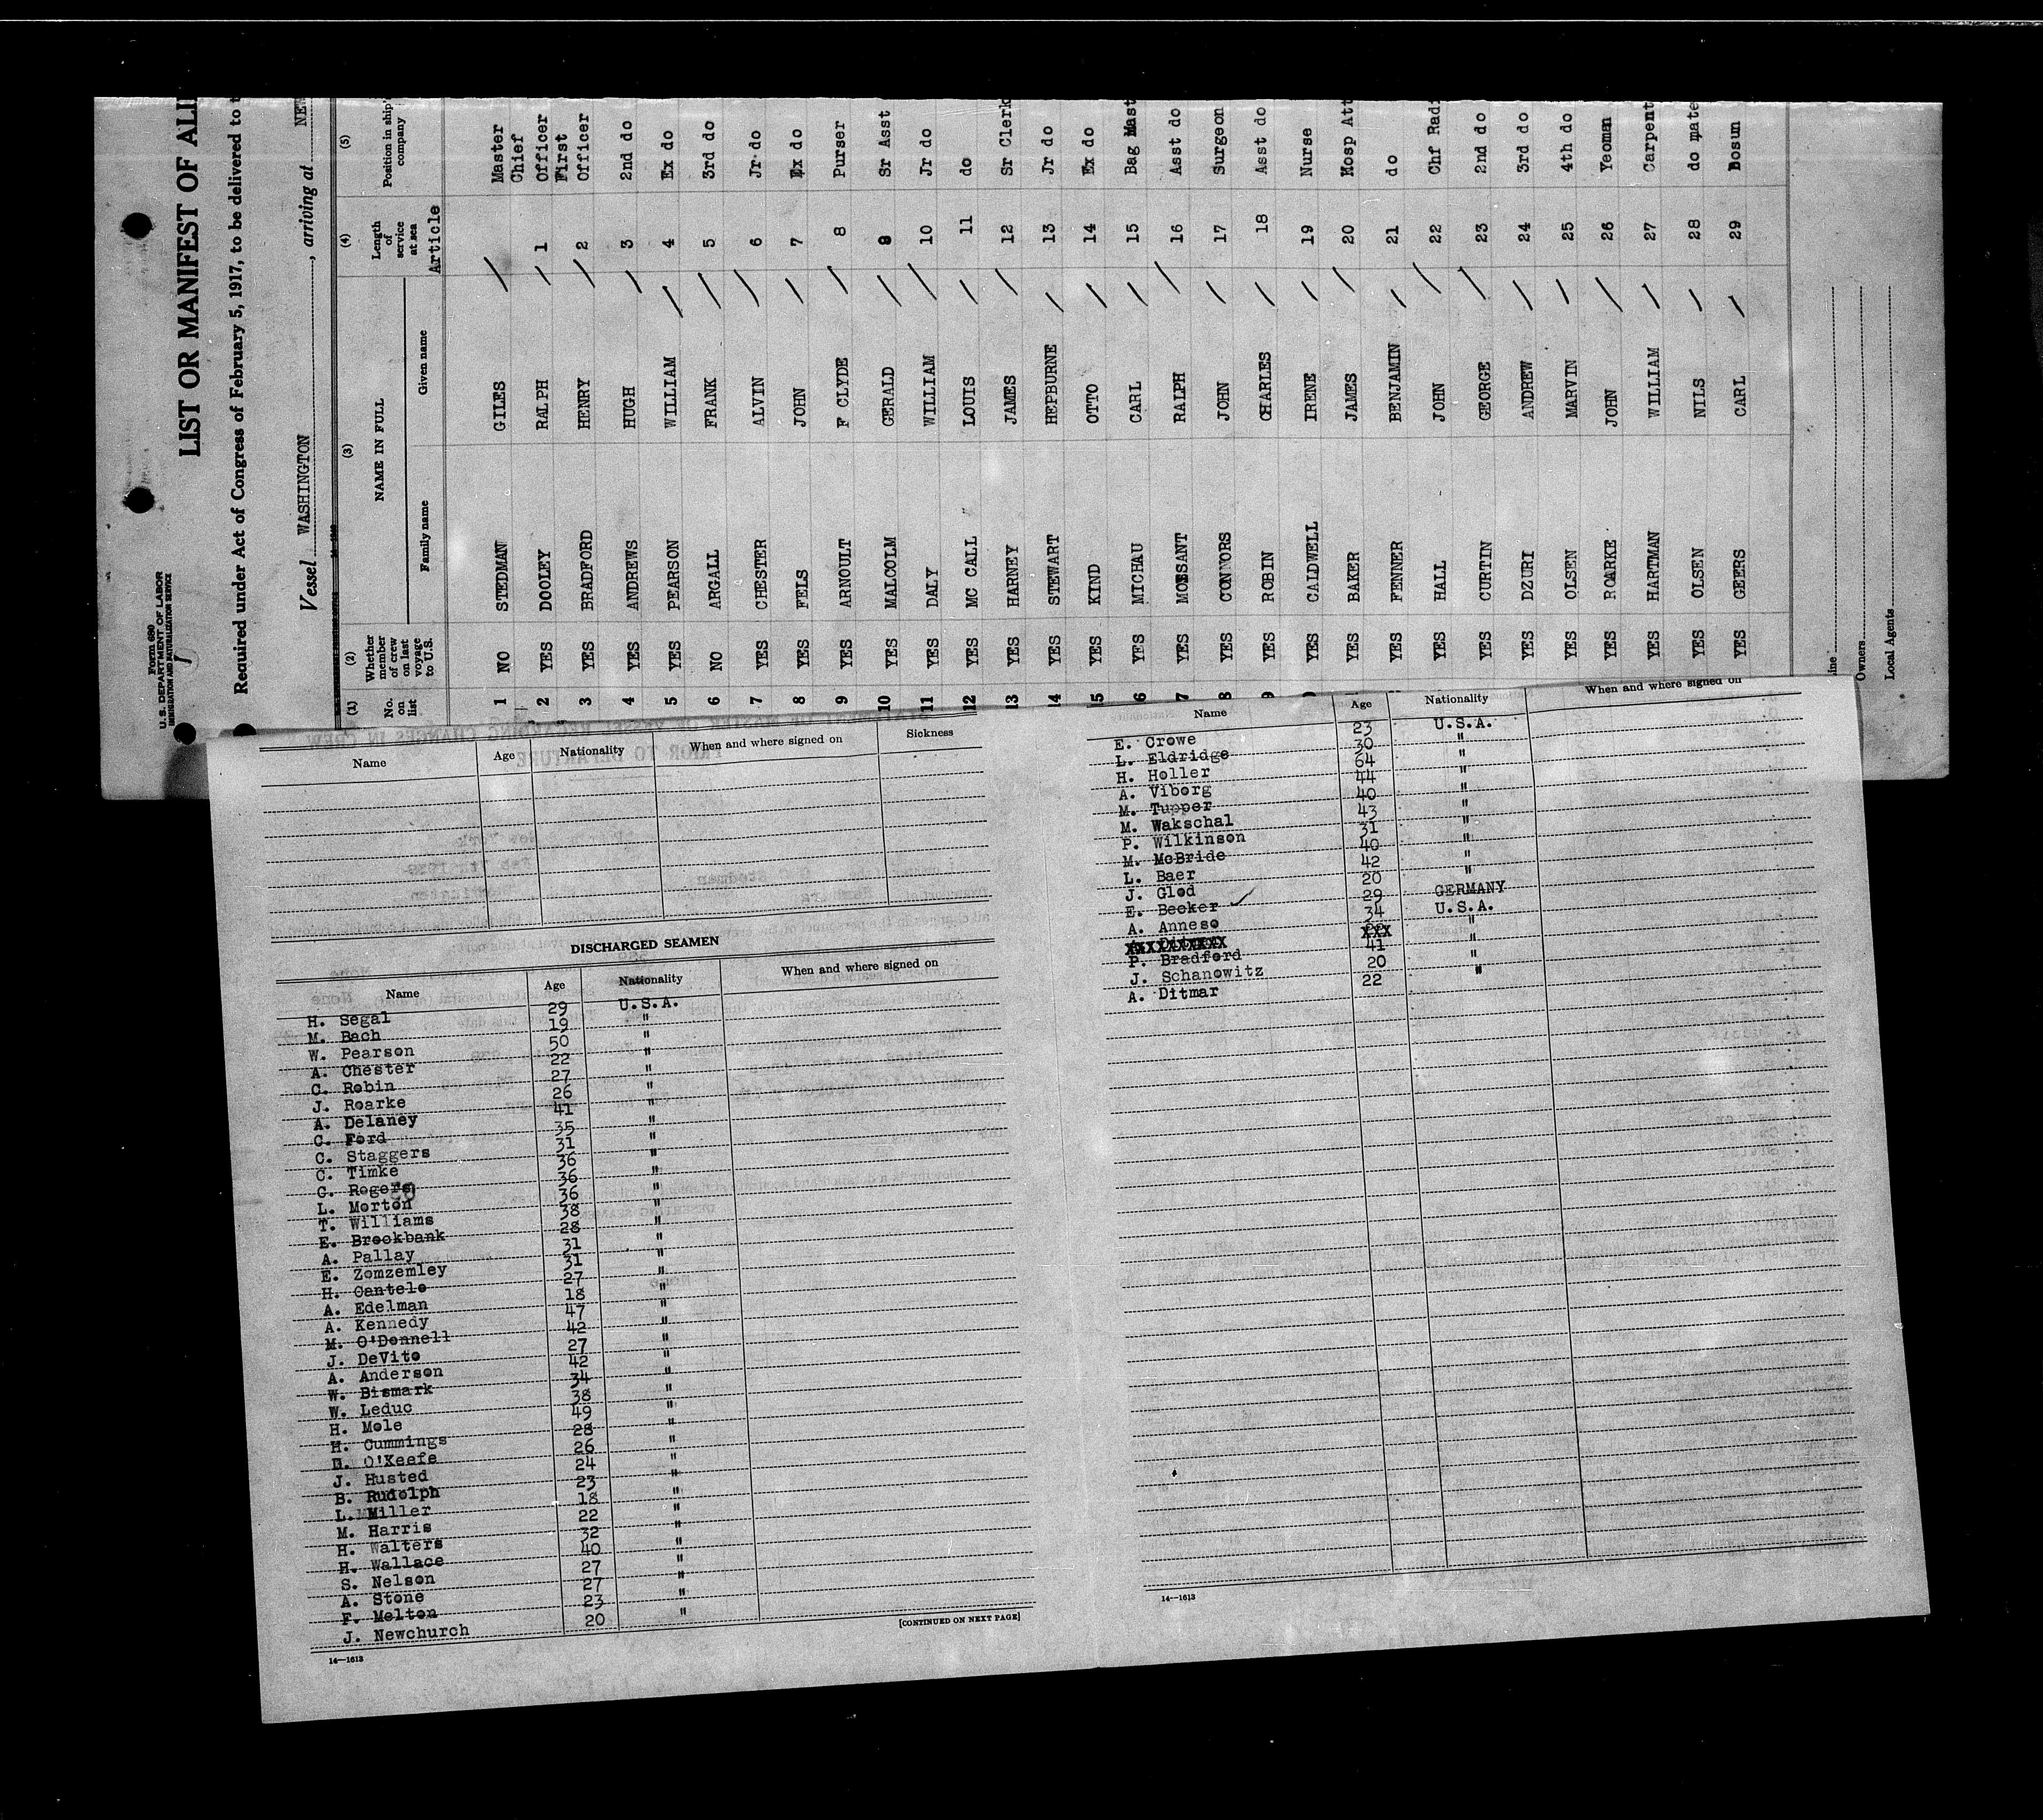 Form 680
U. S. DEPARTMENT OF LABOR
IMMIGRATION AND NATURALIZATION SERVICE
LIST OR MANIFEST OF ALI
Required under Act of Congress of February 5, 1917, to be delivered to t
Vessel WASHINGTON, arriving at NEW
(1) (2) (3) (4) (5)
No. on list Whether member of crew on last voyage to U.S. NAME IN FULL Family name Given name Length of service at sea Position in ship's company
Article
1 NO STEDMAN GILES Master
2 YES DOOLEY RALPH 1 Chief Officer
3 YES BRADFORD HENRY 2 First Officer
4 YES ANDREWS HUGH 3 2nd do
5 YES PEARSON WILLIAM 4 Ex do
6 NO ARGALL FRANK 5 3rd do
7 YES CHESTER ALVIN 6 Jr do
8 YES FELS JOHN 7 Ex do
9 YES ARNOULT F CLYDE 8 Purser
10 YES MALCOLM GERALD 9 Sr Asst
11 YES DALY WILLIAM 10 Jr do
12 YES MC CALL LOUIS 11 do
13 YES HARNEY JAMES 12 Sr Clerk
14 YES STEWART HEPBURNE 13 Jr do
15 YES KIND OTTO 14 Ex do
6 YES MICHAU CARL 15 Bag Mast
7 YES MOESANT RALPH 16 Asst do
8 YES CONNORS JOHN 17 Surgeon
9 YES ROBIN CHARLES 18 Asst do
YES CALDWELL IRENE 19 Nurse
YES BAKER JAMES 20 Hosp Att
YES FENNER BENJAMIN 21 do
YES HALL JOHN 22 Chf Radi
YES CURTIN GEORGE 23 2nd do
YES DZURI ANDREW 24 3rd do
YES OLSEN MARVIN 25 4th do
YES ROARKE JOHN 26 Yeoman
YES HARTMAN WILLIAM 27 Carpent
YES OLSEN NILS 28 do mate
YES GEERS CARL 29 Bosun
ine
Owners
Local Agents
Name Age Nationality When and where signed on Sickness
DISCHARGED SEAMEN
Name Age Nationality When and where signed on
H. Segal 29 U.S.A.
M. Bach 19 "
W. Pearson 50 "
A. Chester 22 "
C. Robin 27 "
J. Roarke 26 "
A. Delaney 41 "
C. Ford 35 "
C. Staggers 31 "
C. Timke 36 "
G. Rogers 36 "
L. Morton 36 "
T. Williams 38 "
E. Brookbank 28 "
A. Pallay 31 "
E. Zomzemley 31 "
H. Cantelo 27 "
A. Edelman 18 "
A. Kennedy 47 "
M. O'Donnell 42 "
J. DeVito 27 "
A. Anderson 42 "
W. Bismark 34 "
W. Leduc 38 "
H. Mole 49 "
H. Cummings 28 "
D. O'Keefe 26 "
J. Husted 24 "
B. Rudolph 23 "
L. Miller 18 "
M. Harris 22 "
H. Walters 32 "
H. Wallace 40 "
S. Nelson 27 "
A. Stone 27 "
F. Melton 23 "
J. Newchurch 20 "
[CONTINUED ON NEXT PAGE]
14—1613
Name Age Nationality When and where signed on
E. Crowe 23 U.S.A.
L. Eldridge 30 "
H. Holler 64 "
A. Viborg 44 "
M. Tupper 40 "
M. Wakschal 43 "
P. Wilkinson 31 "
M. McBride 40 "
L. Baer 42 "
J. Glod 20 "
E. Becker 29 GERMANY
A. Anneso 34 U.S.A.
XXXXXXXXXXX XXX "
P. Bradford 41 "
J. Schanowitz 20 "
A. Ditmar 22 "
14—1613